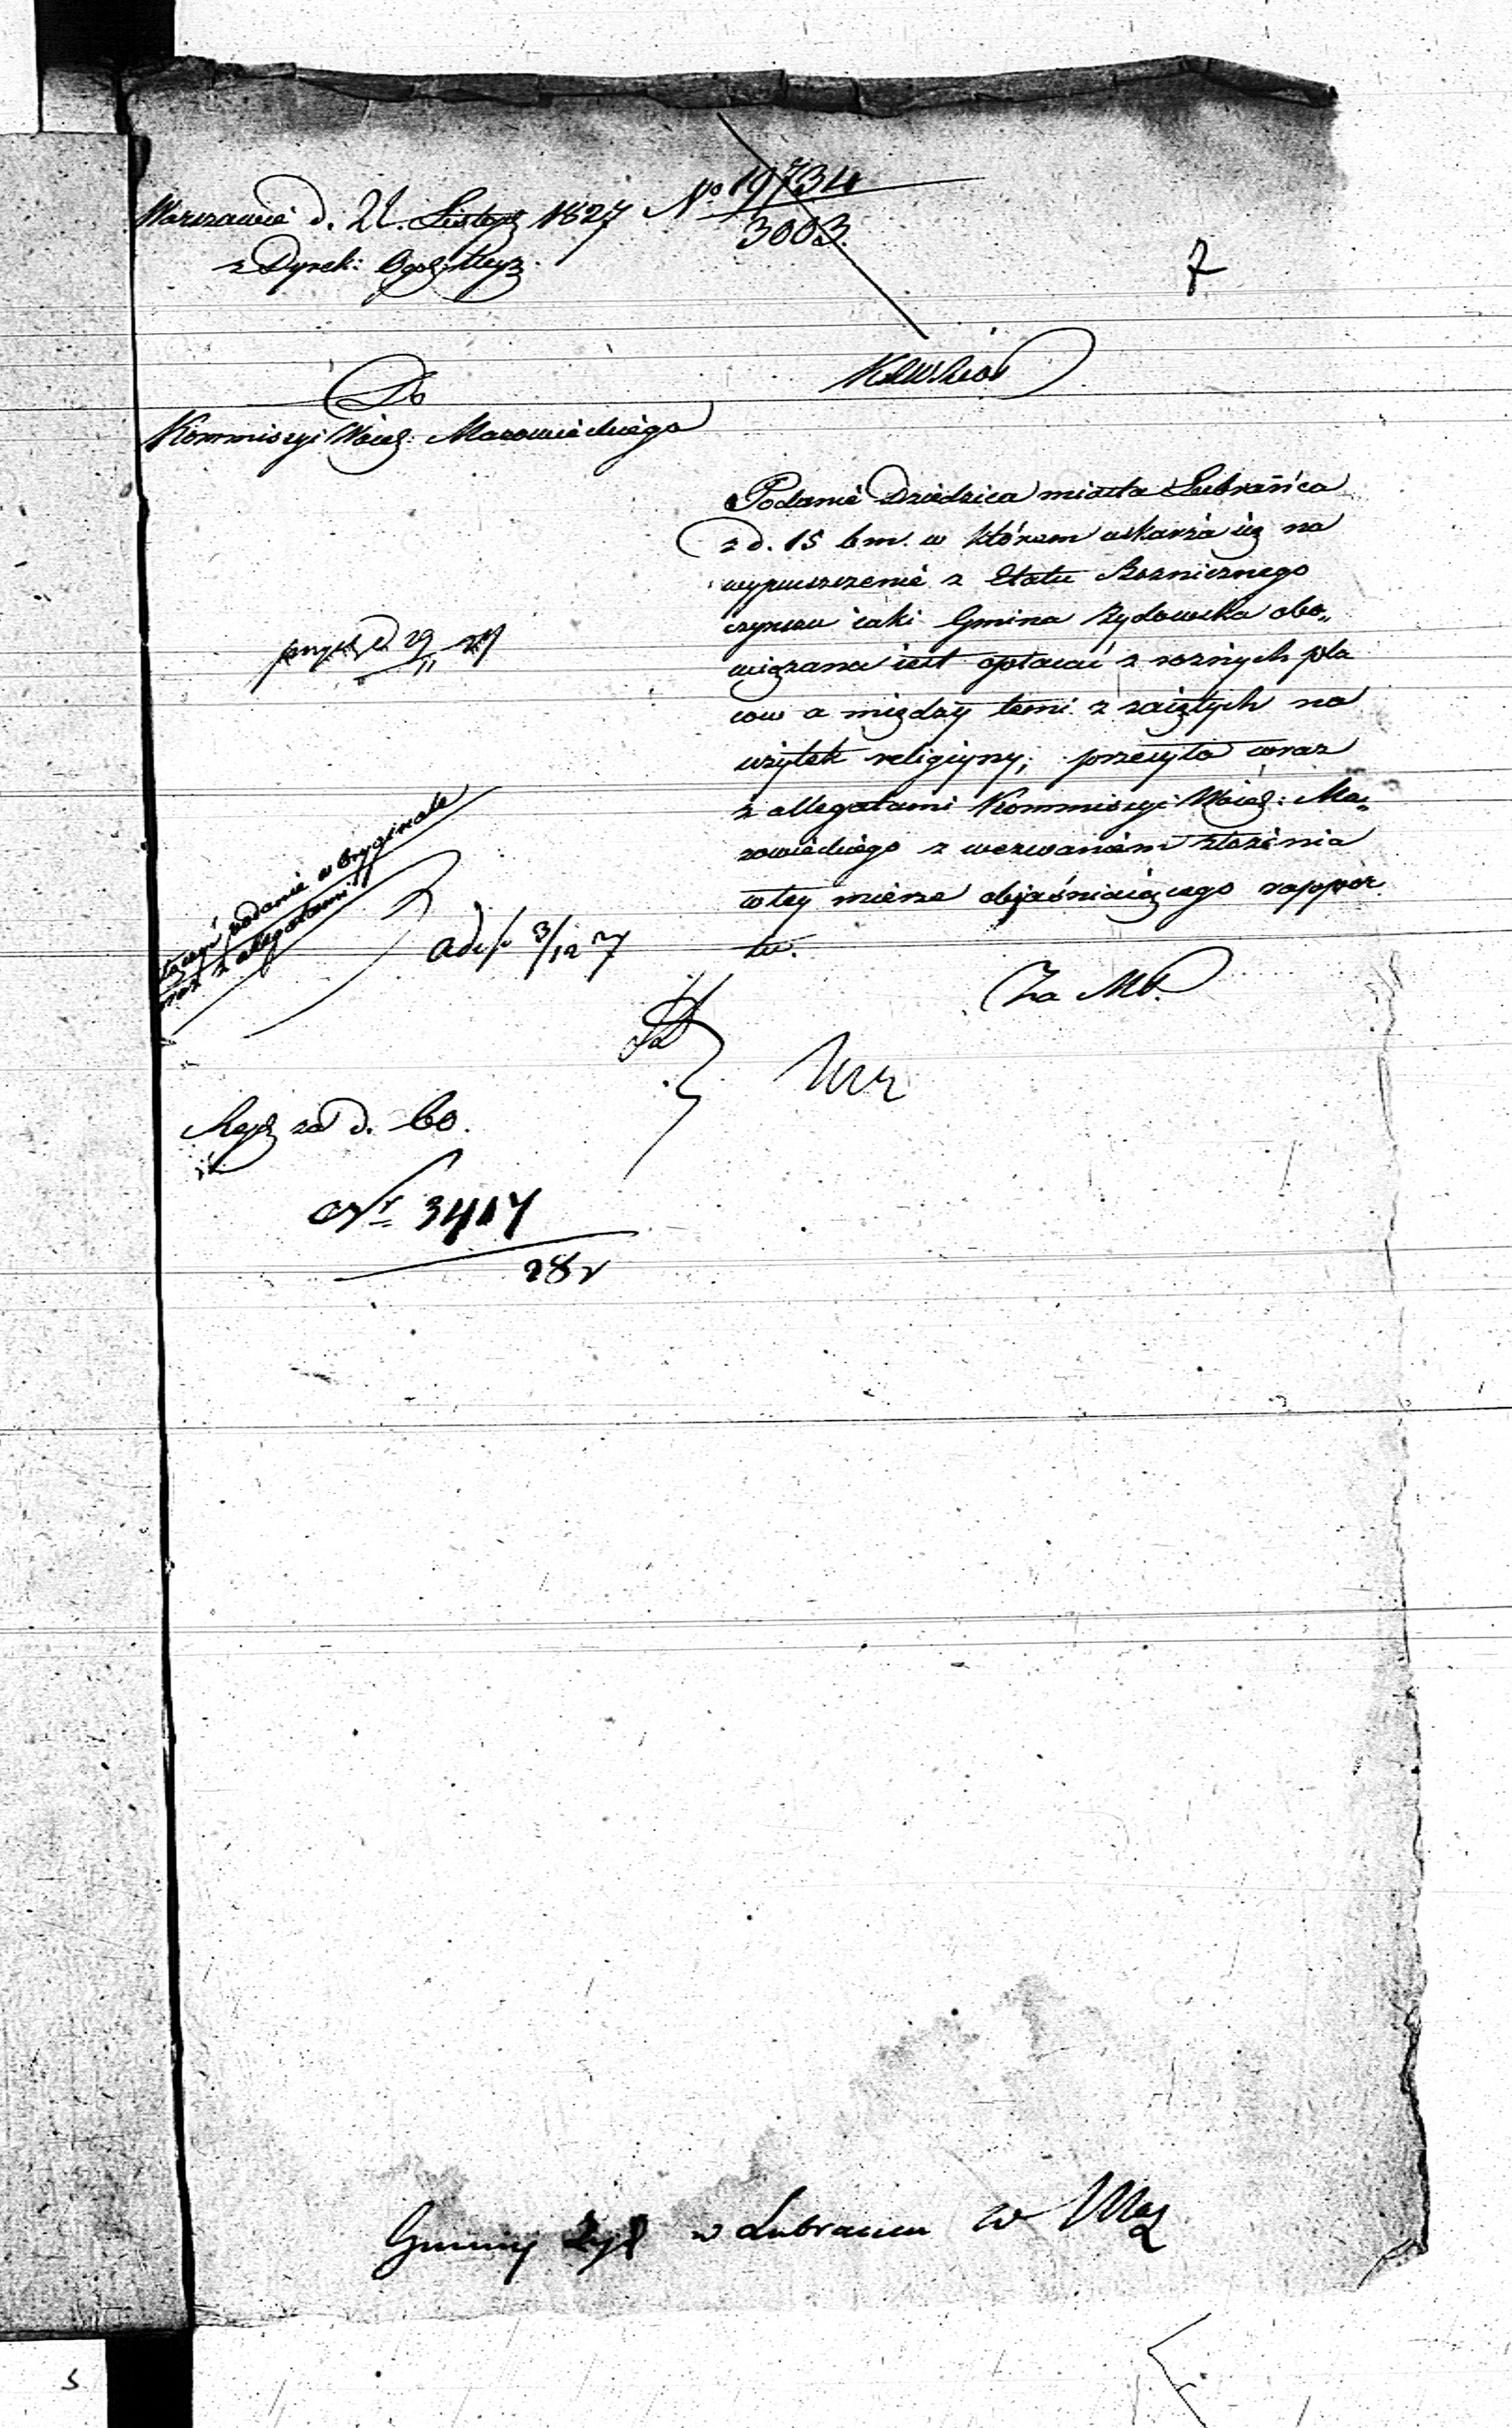 Warszawie d. 21. Listopd 1827 No 19734
3003.
z Dyrek: Ogól: Wyz.
7
Do
Kommissyi Woiew: Mazowieckiego
Podanie Dziedzica miasta Lubrańca
z d. 15 b m. w którem uskarża się na
wypuszczenie z Etatu Bożnicznego
czynszu iaki Gmina Żydowska obo„
wiązana iest opłacać z rożnych pla
cow a między temi z zaiętych na
użytek religiyny; przesyła wraz
z allegatami Kommissyi Woiew: Ma„
zowieckiego z wezwaniem złożenia
w tey mierze obiaśniaiącego rappor
tu.
Za M P.
podanie w Oryginale
z allegatami
3/12 27
za d. 60.
Nr 3417
282
Gminy Żyd w Lubrancu w Maz